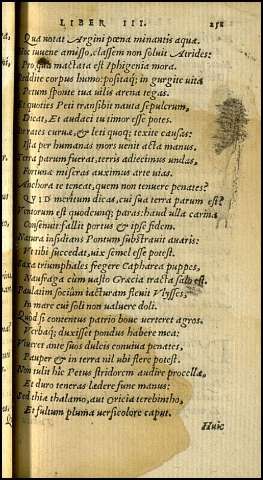 LIBER III. 251
Qua notat Argini pœna minantis aquæ.
Hoc iuuene amisso, classem non soluit Atrides:
Pro qua mactata est Iphigenia mora.
Reddite corpus humo: positaq; in gurgite uita
Petum sponte tua uilis arena tegas.
Et quoties Peti transibit nauta sepulcrum,
Dicat, Et audaci tu timor esse potes.
Ite rates curuæ, & leti quoq; texite causas:
Ista per humanas mors uenit acta manus.
Terra parum fuerat, terris adiecimus undas,
Fortunæ miseras auximus arte uias.
Anchora te teneat, quem non tenuere penates?
QVID meritum dicas, cui sua terra parum est?
Ventorum est quodcunq; paras: haud ulla carina
Consenuit: fallit portus & ipse fidem.
Natura insidians Pontum substrauit auaris:
Vt tibi succedat, uix semel esse potest.
Saxa triumphales fregere Capharea puppes,
Naufraga cum uasto Græcia tracta salo est.
Paulatim socium iacturam fleuit Vlysses
In mare cui soli non ualuere doli.
Quod si contentus patrio boue uerteret agros,
Verbaq; duxisset pondus habere mea:
Viueret ante suos dulcis conuiua penates,
Pauper & in terra nil ubi flere potest.
Non tulit hic Petus stridorem audire procellæ,
Et duro teneras lædere fune manus:
Sed thiæ thalamo, aut oricia terebintho,
Et fultum pluma uersicolore caput.
Huic